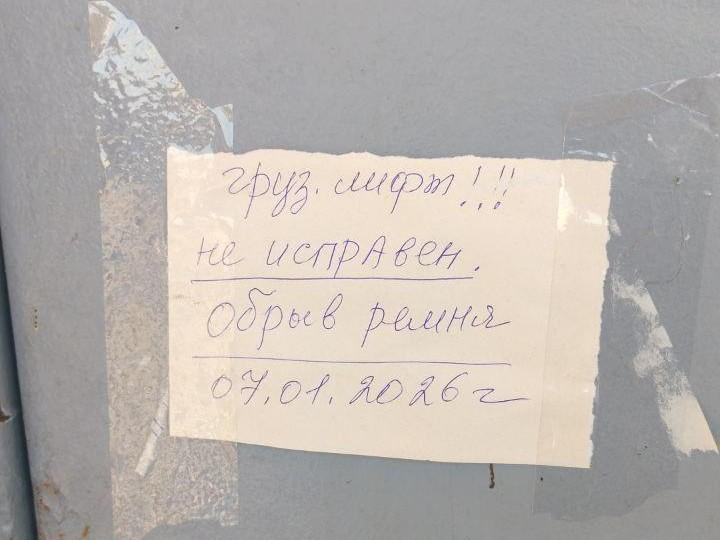 груз. лифт!!!
не исправен.
Обрыв ремня
07.01.2026г